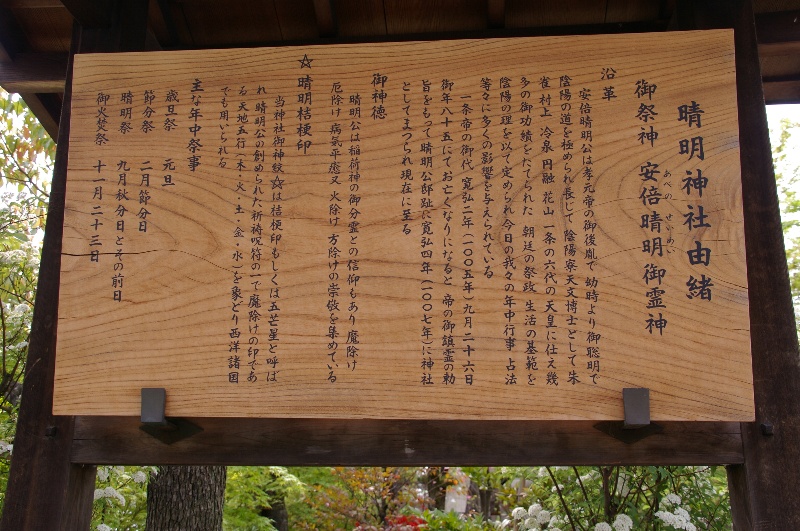 晴明神社由緒
御祭神 安倍晴明御霊神
あべの せいめい
沿革
安倍晴明公は孝元帝の御後胤で 幼時より御聡明で
陰陽の道を極められ長じて陰陽寮天文博士として朱
雀 村上 冷泉 円融 花山 一条の六代の天皇に仕え幾
多の御功績をたてられた 朝廷の祭政 生活の基範を
陰陽の理を以て定められ今日の我々の年中行事 占法
等々に多くの影響を与えられている
一条帝の御代 寛弘二年(一〇〇五年)九月二十六日
御年八十五にてお亡くなりになると 帝の御鎮霊の勅
旨をもって晴明公邸趾に寛弘四年(一〇〇七年)に神社
としてまつられ現在に至る
御神徳
晴明公は稲荷神の御分霊との信仰もあり 魔除け
厄除け 病気平癒又 火除け 方除けの崇敬を集めている
☆ 晴明桔梗印
当神社御神紋☆は桔梗印もしくは五芒星と呼ば
れ 晴明公の創められた祈祷呪符の一で魔除けの印であ
る 天地五行(木・火・土・金・水)を象どり西洋諸国
でも用いられる
主な年中祭事
歳旦祭 元旦
節分祭 二月節分日
晴明祭 九月秋分日とその前日
御火焚祭 十一月二十三日